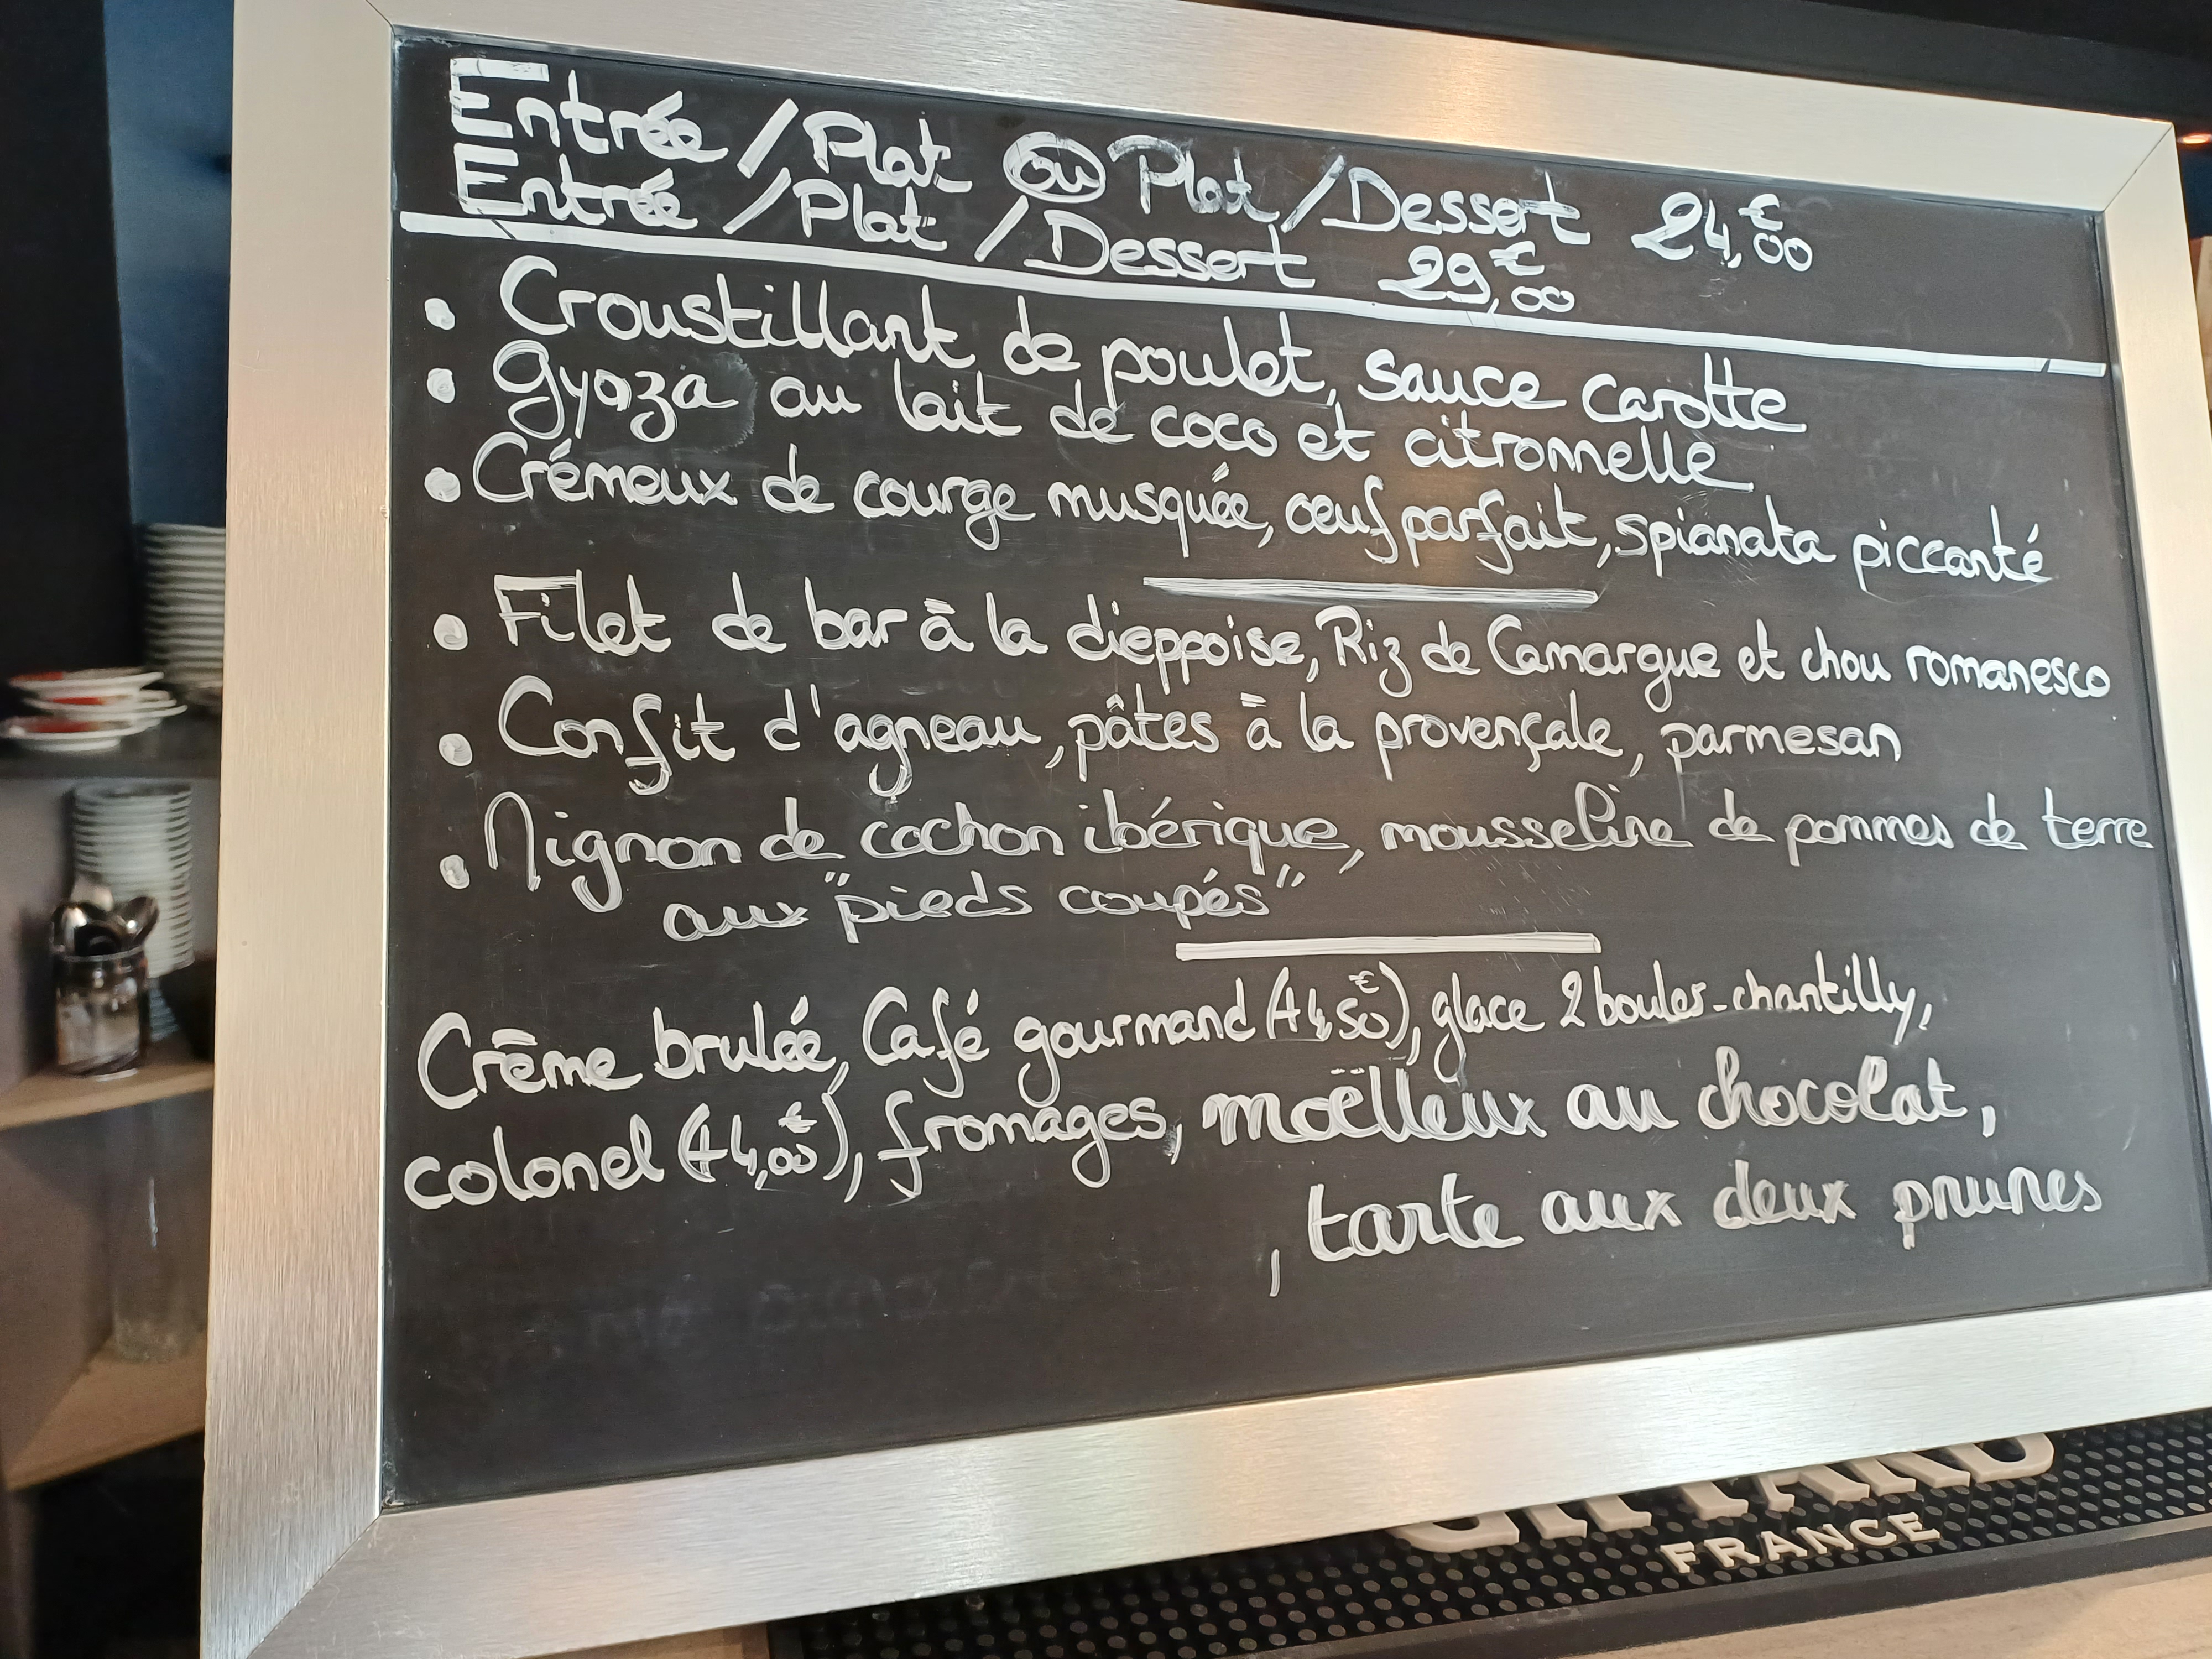 Entrée / Plat ou Plat / Dessert 24,00€
Entrée / Plat / Dessert 29,00€
• Croustillant de poulet, sauce carotte
• Gyoza au lait de coco et citronnelle
• Crémeux de courge musquée, œuf parfait, spianata piccanté
• Filet de bar à la dieppoise, Riz de Camargue et chou romanesco
• Confit d'agneau, pâtes à la provençale, parmesan
• Mignon de cochon ibérique, mousseline de pommes de terre
aux "pieds coupés"
Crème brulée, Café gourmand (+4,50€), glace 2 boules-chantilly,
colonel (+4,00€), fromages, moëlleux au chocolat,
, tarte aux deux prunes
FRANCE